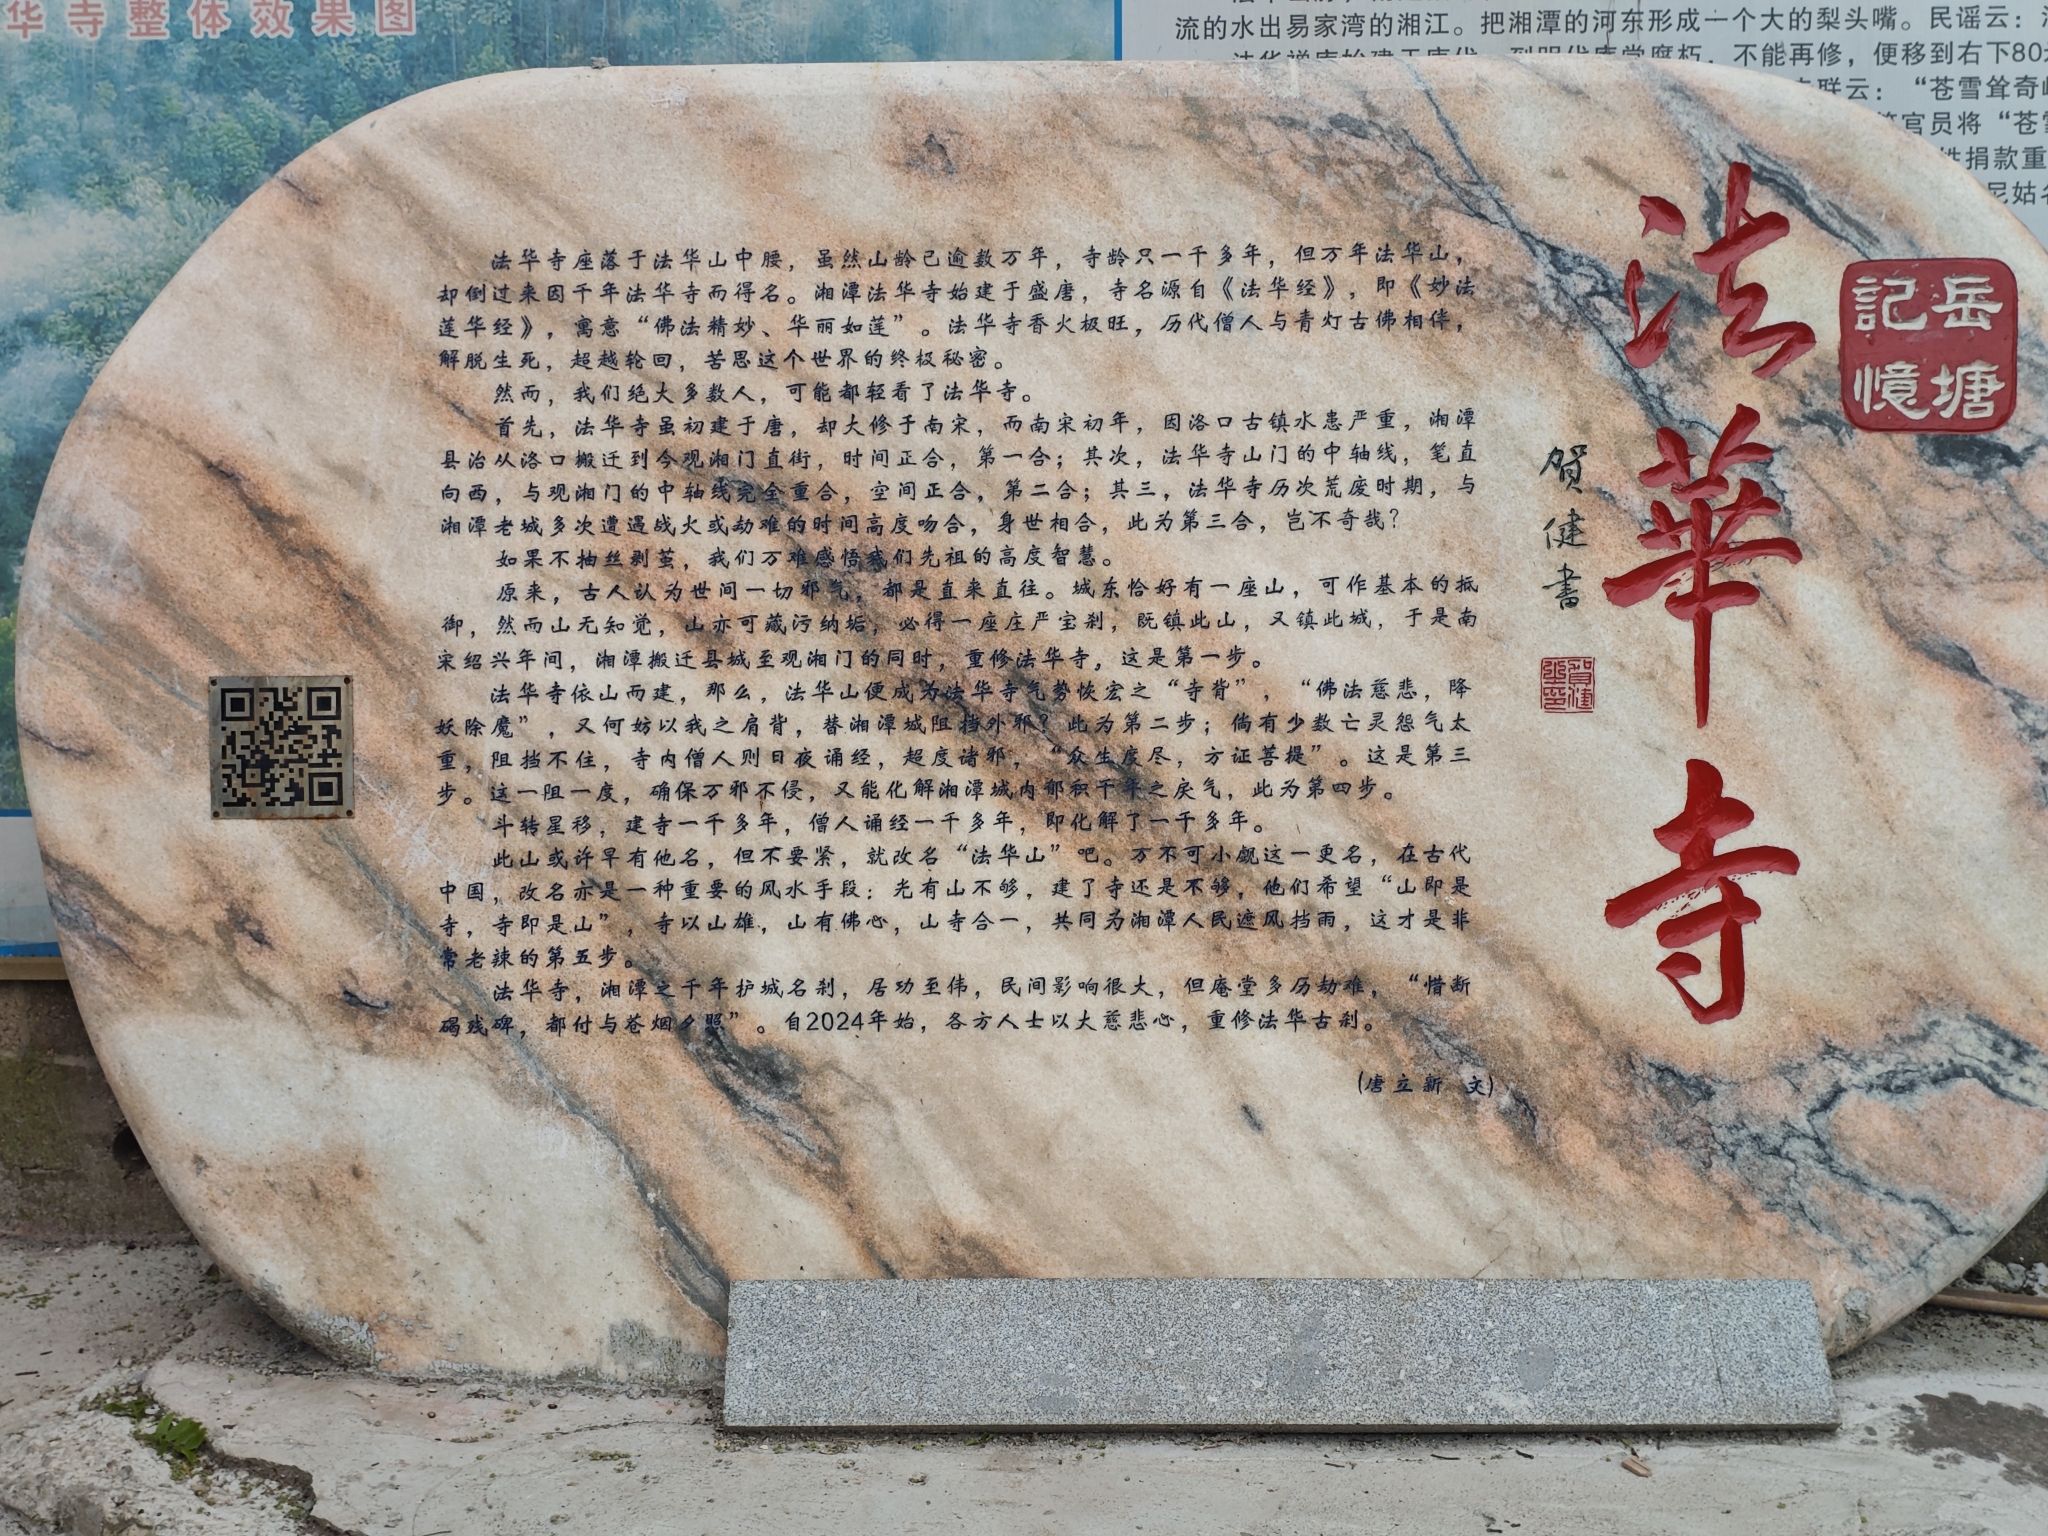 华寺整体效果图
流的水出易家湾的湘江。把湘潭的河东形成一个大的犁头嘴。民谣云：
不能再修，便移到右下80
联云：“苍雪耸奇
官员将“苍
捐款重
尼姑
岳塘
記憶
法華寺
贺健書
法华寺座落于法华山中腰，虽然山龄已逾数万年，寺龄只一千多年，但万年法华山，
却倒过来因千年法华寺而得名。湘潭法华寺始建于盛唐，寺名源自《法华经》，即《妙法
莲华经》，寓意“佛法精妙、华丽如莲”。法华寺香火极旺，历代僧人与青灯古佛相伴，
解脱生死，超越轮回，苦思这个世界的终极秘密。
然而，我们绝大多数人，可能都轻看了法华寺。
首先，法华寺虽初建于唐，却大修于南宋，而南宋初年，因洛口古镇水患严重，湘潭
县治从洛口搬迁到今观湘门直街，时间正合，第一合；其次，法华寺山门的中轴线，笔直
向西，与观湘门的中轴线完全重合，空间正合，第二合；其三，法华寺历次荒废时期，与
湘潭老城多次遭遇战火或劫难的时间高度吻合，身世相合，此为第三合，岂不奇哉？
如果不抽丝剥茧，我们万难感悟我们先祖的高度智慧。
原来，古人认为世间一切邪气，都是直来直往。城东恰好有一座山，可作基本的抵
御，然而山无知觉，山亦可藏污纳垢，必得一座庄严宝刹，既镇此山，又镇此城，于是南
宋绍兴年间，湘潭搬迁县城至观湘门的同时，重修法华寺，这是第一步。
法华寺依山而建，那么，法华山便成为法华寺气势恢宏之“寺背”，“佛法慈悲，降
妖除魔”，又何妨以我之肩背，替湘潭城阻挡外邪？此为第二步；倘有少数亡灵怨气太
重，阻挡不住，寺内僧人则日夜诵经，超度诸邪，“众生度尽，方证菩提”。这是第三
步。这一阻一度，确保万邪不侵，又能化解湘潭城内郁积千年之戾气，此为第四步。
斗转星移，建寺一千多年，僧人诵经一千多年，即化解了一千多年。
此山或许早有他名，但不要紧，就改名“法华山”吧。万不可小觑这一更名，在古代
中国，改名亦是一种重要的风水手段：光有山不够，建了寺还是不够，他们希望“山即是
寺，寺即是山”，寺以山雄，山有佛心，山寺合一，共同为湘潭人民遮风挡雨，这才是非
常老辣的第五步。
法华寺，湘潭之千年护城名刹，居功至伟，民间影响很大，但庵堂多历劫难，“惜断
碣残碑，都付与苍烟夕照”。自2024年始，各方人士以大慈悲心，重修法华古刹。
(唐立新 文)